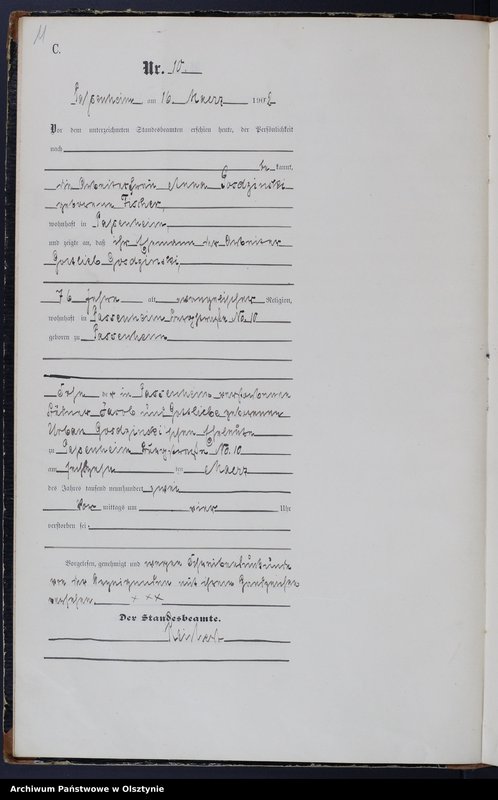 11
C.
Nr. 10.
Passenheim am 16. Maerz 1902
Vor dem unterzeichneten Standesbeamten erschien heute, der Persönlichkeit
nach
be kannt,
die Arbeiterfrau Anna Gosdzinski
geborene Fischer,
wohnhaft in Passenheim,
und zeigte an, daß ihr Ehemann der Arbeiter
Gottlieb Gosdzinski,
76 Jahre alt, evangelischer Religion,
wohnhaft in Passenheim No. 10
geboren zu Passenheim
Sohn der in Passenheim verstorbenen
Jacob und Gottliebe geborene
Urban Gosdzinski'schen Eheleute
zu Passenheim No. 10
am sechszehn ten Maerz
des Jahres tausend neunhundert zwei
Vor mittags um vier Uhr
verstorben sei.
Vorgelesen, genehmigt und wegen Schreibensunkunde
von der Anzeigenden mit ihrem Handzeichen
versehen. x x x
Der Standesbeamte.
Archiwum Państwowe w Olsztynie